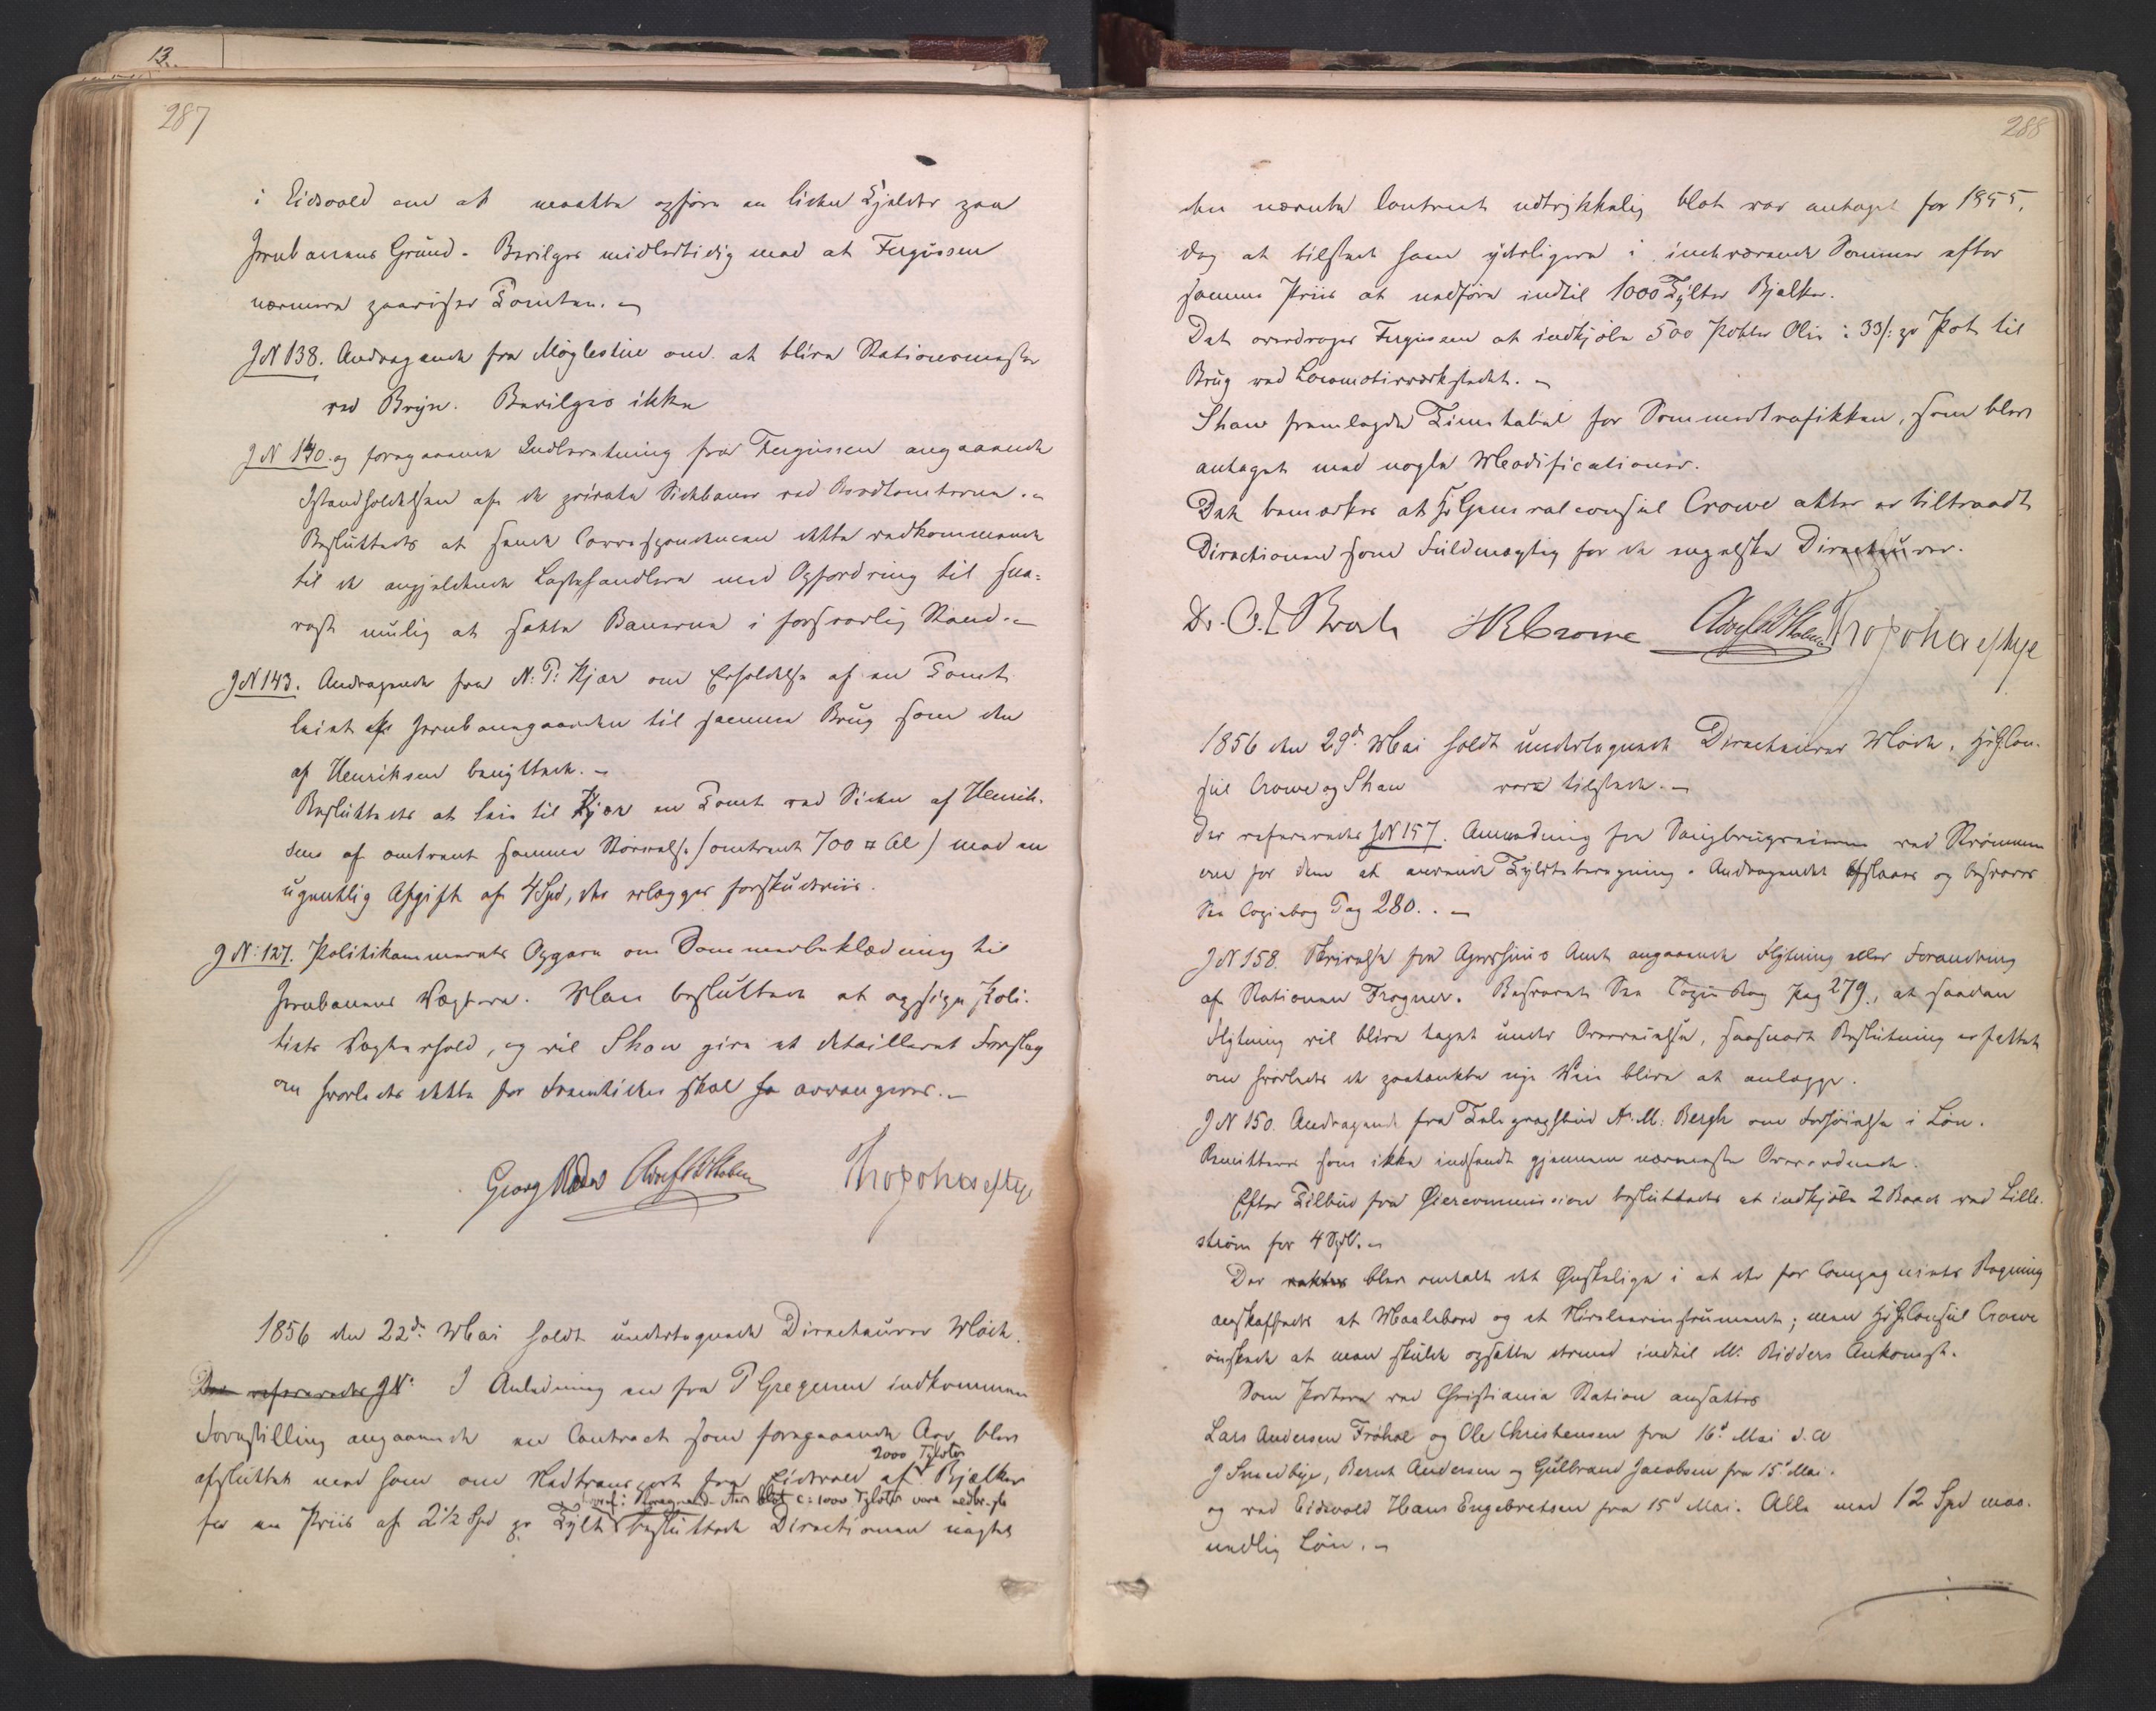 13.
287
i Eidsvold om at maatte opføre en liden Kjelder paa
Jernbanens Grund. Bevilges midlertidig mod at Fergussen
nærmere paaviser Tomten.
JN 138. Andragende fra Møglestue om at blive Stationsmester
ved Bryn. Bevilges ikke
JN 140. og foregaaende Indberetning fra Fergussen angaaende
Istandholdelsen af de private Sidebaner ved Bordtomterne.
Besluttedes at sende Correspondencen dette vedkommende
til de angjeldende Lasthandlere med Opfordring til sna-
rest mulig at sætte Banerne i forsvarlig Stand.
JN 143. Andragende fra N. P. Kjær om Erholdelse af en Tomt
leiet af Jernbanegaarden til samme Brug som den
af Henriksen benyttede.
Besluttedes at leie til Kjær en Tomt ved Siden af Henrik-
sens af omtrent samme Størrelse (omtrent 700 □ Al) mod en
ugentlig Afgift af 4 Spd, der erlægges forskudsviis.
JN: 127. Politikammerets Opgave om Sommerbeklædning til
Jernbanens Vægtere. Man besluttede at opsige Poli-
tiets Vægterhold, og vil Shaw give et detailleret Forslag
om hvorledes dette for Fremtiden skal arrangeres.
Georg Roed Adolf Holm Thos Joh Heftye
1856 den 22de Mai holdt undertegnede Directeurer Møde.
Der refereredes JN: I Anledning en fra P Gregersen indkommen
Forestilling angaaende en Contract som foregaaende Aar blev
2000 Tylvter
afsluttet med ham om Nedtransport fra Eidsvold af Bjælker
hvoraf i foregaaende Aar blot c: 1000 Tylvter vare nedbragte
for en Priis af 2 1/2 Spd pr Tylt besluttede Directionen uagtet
288
den nævnte Contract udtrykkelig blot var antaget for 1855,
dog at tilstede ham yderligere i indeværende Sommer efter
samme Priis at nedføre indtil 1000 Tylter Bjelker.
Det overdroges Fergussen at indkjøbe 500 Potter Olie à 33 ß pr Pot til
Brug ved Locomotivværkstedet.
Shaw fremlagde Timetabel for Sommertrafikken, som blev
antaget med nogle Modificationer.
Det bemærkes at Hr Generalconsul Crowe atter er tiltraadt
Directionen som Fuldmægtig for de engelske Directeurer.
Dr. O. J. Broch JRCrowe Adolf Holm Thos Joh Heftye
1856 den 29de Mai holdt undertegnede Directeurer Møde. Hr GCon-
sul Crowe og Shaw vare tilstede.
Der refereredes JN 157. Anmodning fra Saugbrugseierne ved Strømmen
om for dem at anvende Tyltberegning. Andragendet afslaaes og besvares
See Copiebog Pag 280.
JN 158. Skrivelse fra Agershuus Amt angaaende Flytning eller Forandring
af Stationen Frogner. Besvaret See Copie Bog Pag 279., at saadan
Flytning vil blive taget under Overveielse, saasnart Beslutning er fattet
om hvorledes de paatænkte nye Veie blive at anlægge.
JN 150. Andragende fra Telegraphbud A. M. Bergh om Forhøielse i Løn.
Remitteres som ikke indsendt gjennem nærmeste Overordnede.
Efter Tilbud fra Øiercommission besluttedes at indkjøbe 2 Baade ved Lille-
strøm for 4 Spd.
Der blev omtalt det Ønskelige i at der for Compagniets Regning
anskaffedes et Maalebord og et Nivelleerinstrument; men Hr GConsul Crowe
ønskede at man skulde opsætte dermed indtil Mr. Bidders Ankomst.
Som Portere ved Christiania Station ansattes
Lars Andersen Frøhoe og Ole Christensen fra 16d Mai d. A
J Smedbye, Bernt Andersen og Gulbrand Jacobsen fra 15d Mai.
og ved Eidsvold Hans Engebretsen fra 15d Mai. Alle med 12 Spd maa-
nedlig Løn.